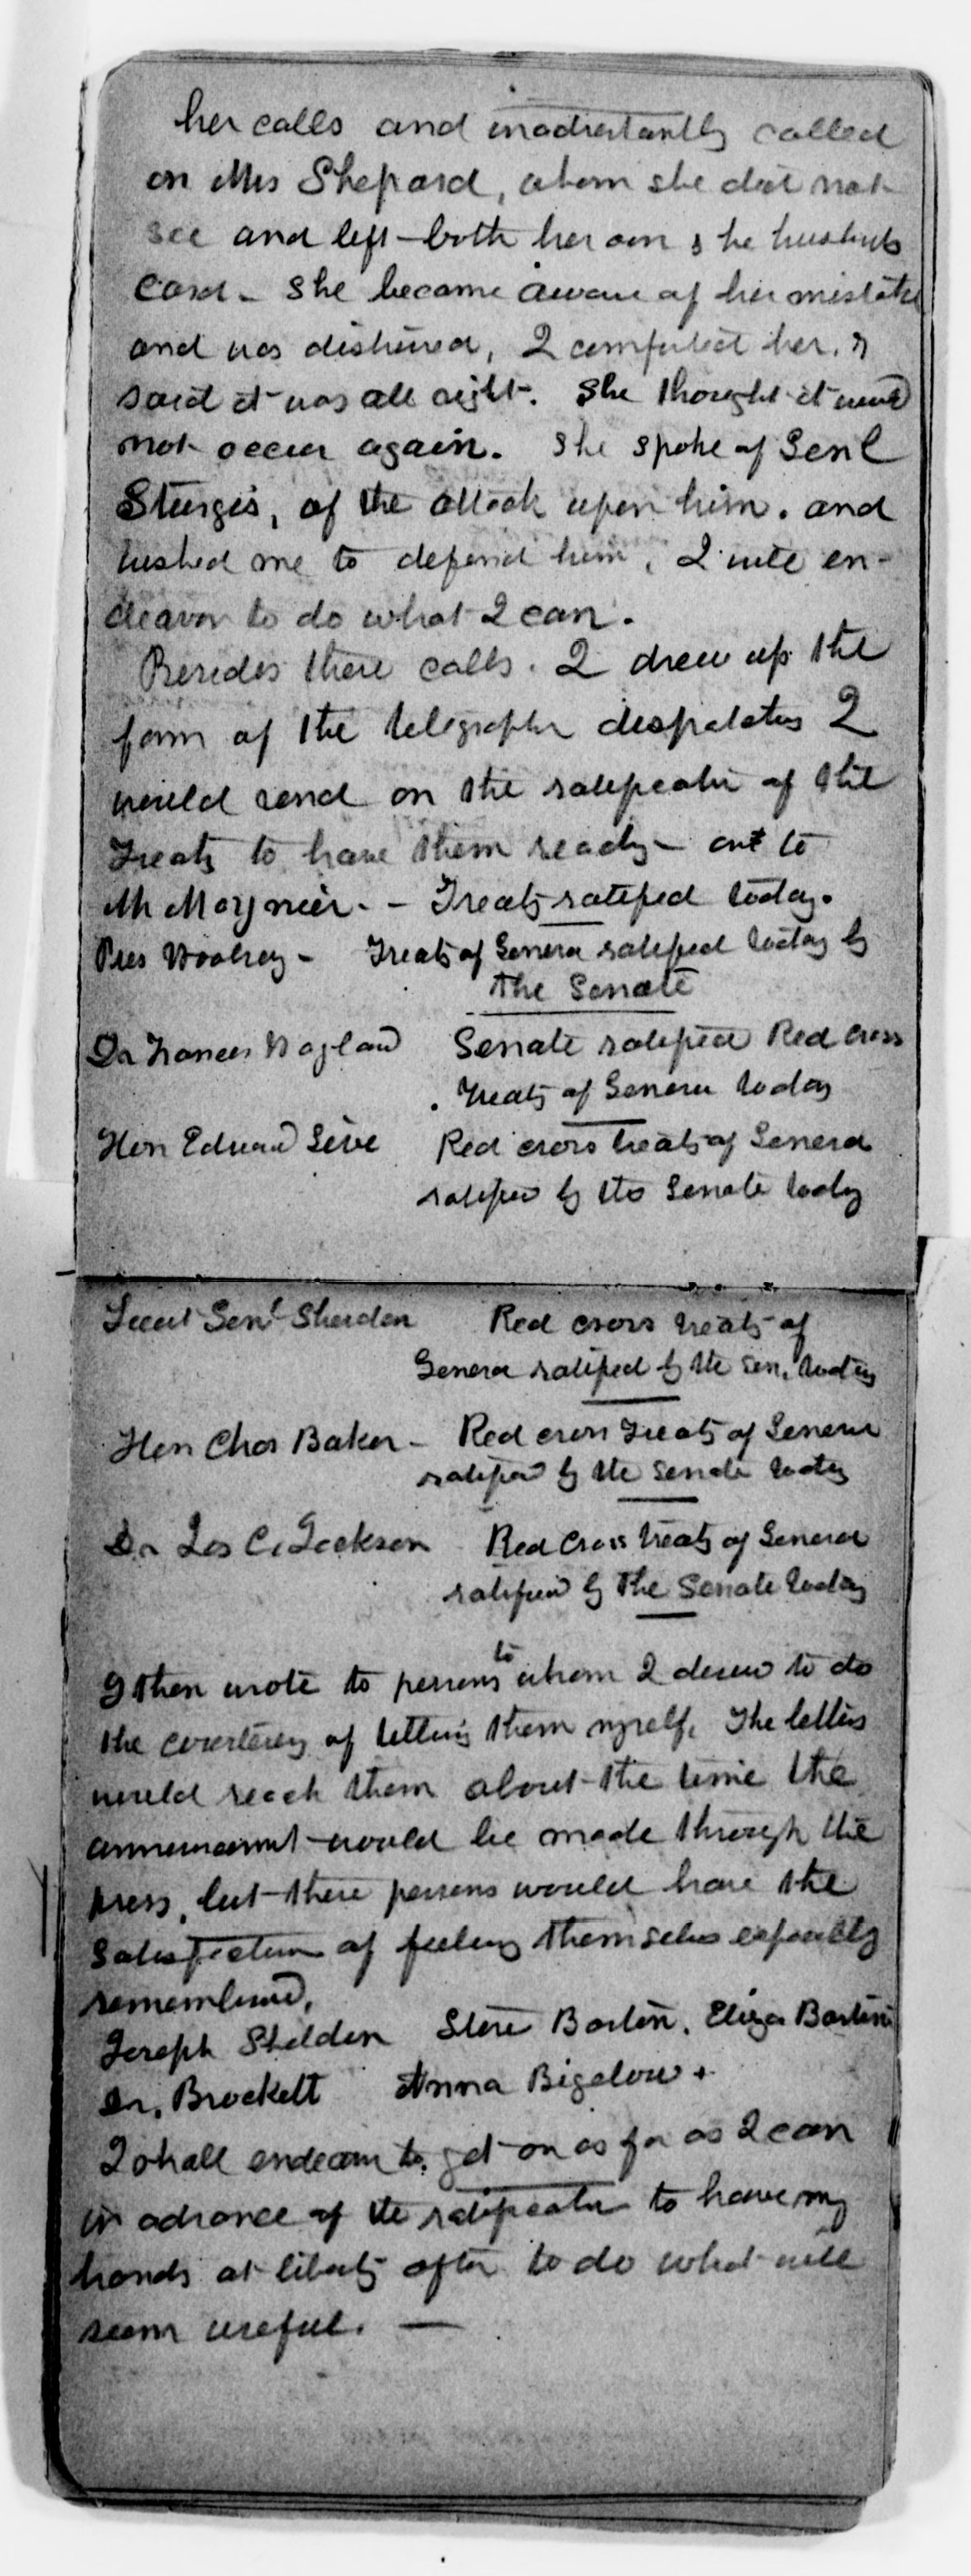 her calls and inadvertantly called
on Mrs Shepard, whom she did not
see and left both her own & he husbands
card - she became aware of her mistake
and was distressed, I comforted her, &
said it was all right. She thought it would
not occur again. She spoke of Genl
Sturgis, of the attack upon him. and
wished me to defend him, I will en-
deavor to do what I can.
Besides these calls. I drew up the
form of the telegraph despatches I
would send on the ratification of the
Treaty to have them ready - one to
M Moynier. - Treaty ratified today.
Pres Woolsey - Treaty of Geneva ratified today by
the Senate
Dr Frances Wayland Senate ratified Red cross
Treaty of Geneva today
Hon Edward Seve Red cross treaty of Geneva
ratified by the Senate today
Lieut Genl Sheridan Red cross treaty of
Geneva ratified by the Sen. today
Hon Chas Baker - Red cross Treaty of Geneva
ratified by the Senate today
Dr Jas C. Jackson Red Cross treaty of Geneva
ratified by the Senate today
I then wrote to persons to whom I desired to do
the courtesy of telling them myself. The letters
would reach them about the time the
announcement would be made through the
press, but these persons would have the
satisfaction of feeling themselves especially
remembered,
Joseph Sheldon Steve Barton. Eliza Barton
Dr. Brockett Anna Bigelow +
I shall endeavor to get on as far as I can
in advance of the ratification to have my
hands at liberty after to do what will
seem useful. —